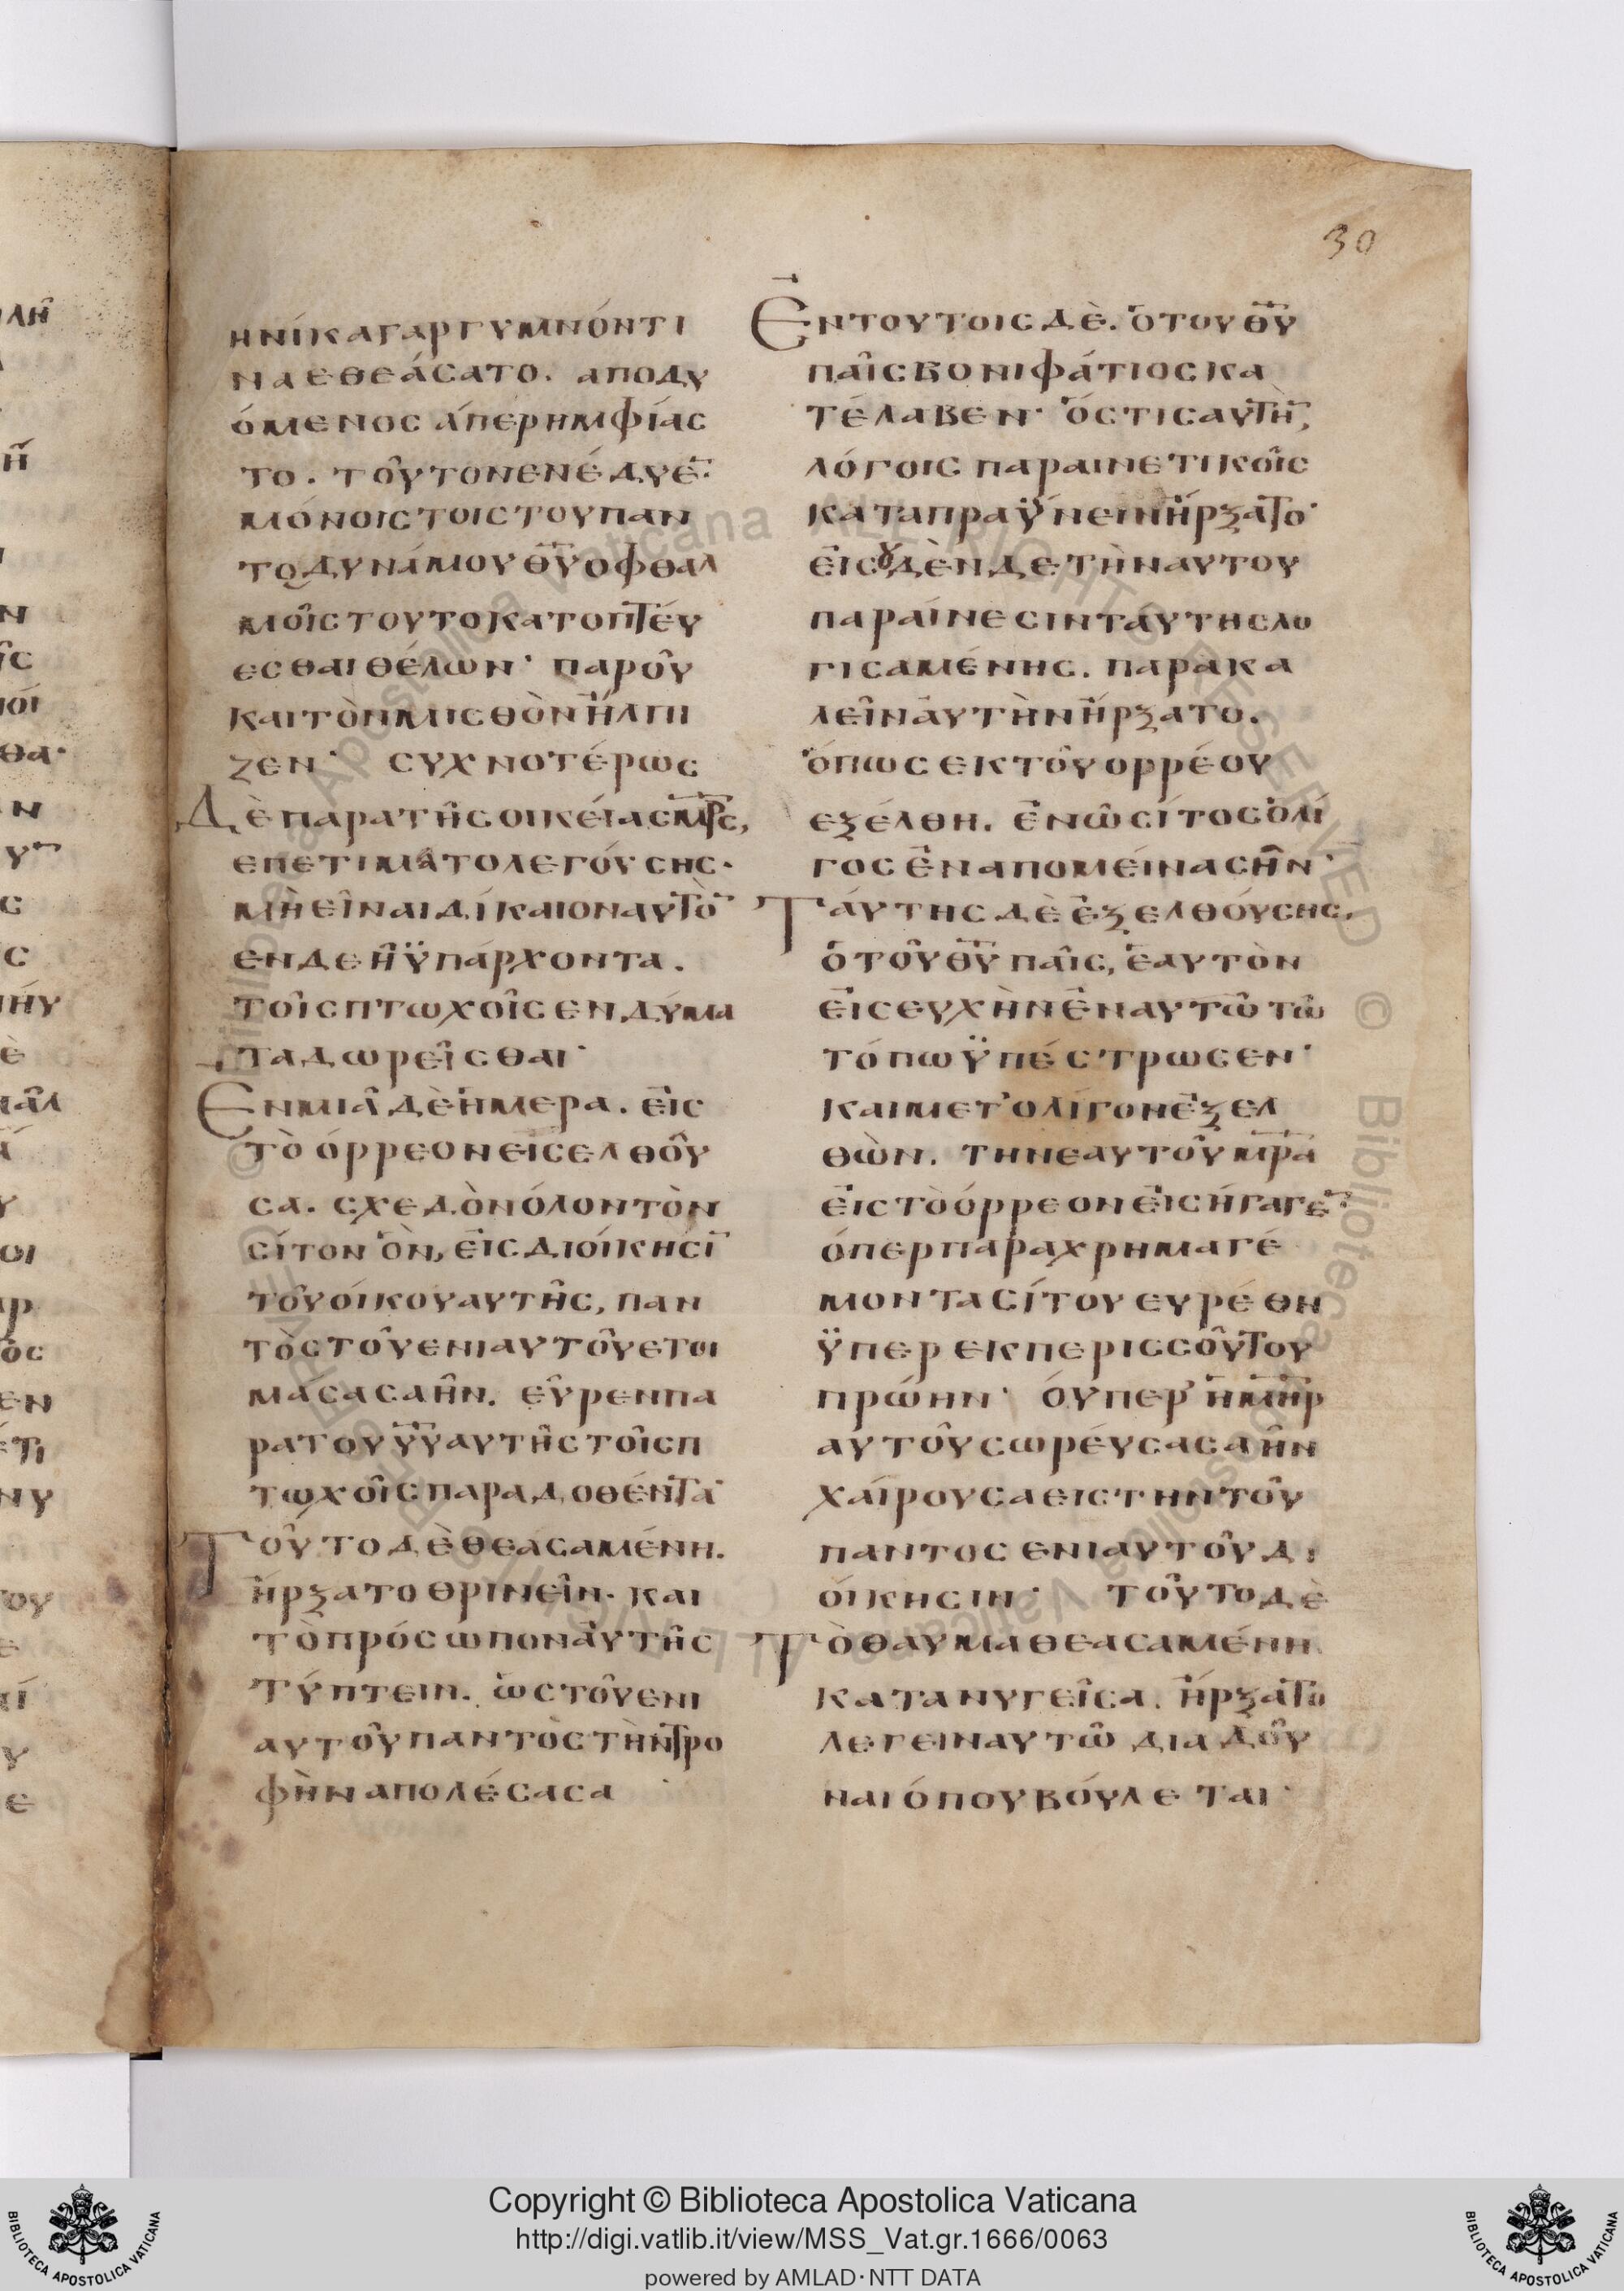 30
ηνίκα γαρ γυμνόν τι
να εθεάσατο. αποδυ
όμενος άπερ ημφίας
το. τοῦτον ενέδυε̅.
μόνοις τοις του παν
τοδυνάμου θ̅υ̅ οφθαλ
μοῖς τουτο κατοπτέυ
εσθαι θέλων· παρ οῦ
και τὸν μισθὸν ἤλπι
ζεν· συχνοτέρως
Δὲ παρα τῆς οικείας μ̅ρ̅ς,
επετιματο λεγούσης·
μὴ εῖναι δίκαιον αυτὸ̅
ενδεῆ ϋπάρχοντα.
τοῖς πτωχοῖς ενδύμα
τα δωρεῖσθαι·
Εν μιᾶ δὲ ἡμερα. εἰς
τὸ όρρεον εισελθοῦ
σα. σχεδὸν όλον τὸν
σίτον ὃν, εἰς διοίκησί̅
τοῦ οίκου αυτῆς, παν
τὸς τοῦ ενιαυτοῦ ετοι
μάσασα ῆν. εῦρεν πα
ρα του υ̅υ̅ αυτῆς τοῖς π
τωχοῖς παραδοθέντα·
Τοῦτο δὲ θεασαμένη.
ἤρξατο θρινεῖν. και
τὸ πρόσωπον ἀυτῆς
τύπτειν. ὡς τοῦ ενι
αυτοῦ παντὸς τὴν τρο
φὴν απολέσασα
Ἐν τουτοις δὲ. ὁ του θ̅υ̅
παῖς βονιφάτιος κα
τέλαβεν· ὅστις αυτὴ̅,
λόγοις παραινετικοῖς
καταπραΰνειν ἤρξατο·
εἰς ουδὲν δε τὴν αυτου
παραίνεσιν τάυτης λο
γισαμένης. παρακα
λεῖν ἀυτὴν ἤρξατο.
ὅπως εκ τοῦ ορρέου
εξέλθη. ἐν ῶ σίτος ὀλί
γος ἐναπομείνας ῆν·
Τάυτης δὲ ἐξελθούσης,
ὁ τοῦ θ̅υ̅ παῖς, ἑαυτὸν
εἰς ευχὴν ἐν αυτῶ τῶ
τόπω ϋπέστρωσεν·
και μετ' ολίγον ἐξελ
θὼν. την εαυτοῦ μ̅ρ̅α̅
εἰς τὸ όρρεον εἰσήγαγε̅
όπερ παραχρημα γέ
μοντα σίτου ευρέθη
ϋπερ εκπερισσοῦ του
πρώην· όυπερ ἡ μ̅η̅ρ̅
αυτοῦ σωρέυσασα ῆν
χαίρουσα εις την τοῦ
παντος ενιαυτοῦ δι
οίκησιν· τοῦτο δὲ
Τὸ θαυμα θεασαμένη
κατανυγεῖσα. ἤρξατο
λεγειν αυτῶ διαδοῦ
ναι όπου βούλεται·
Copyright © Biblioteca Apostolica Vaticana
http://digi.vatlib.it/view/MSS_Vat.gr.1666/0063
powered by AMLAD·NTT DATA